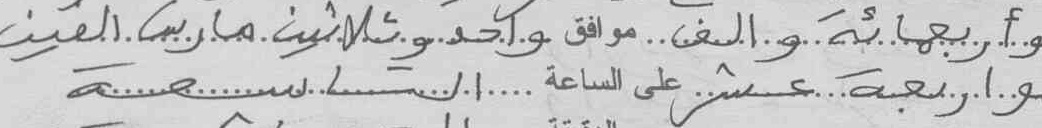 وأربعمائة و الف موافق واحد وثلاثين مارس الفين
واربعة عشر على الساعة التاسعة